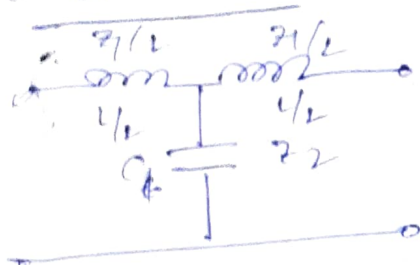 Z1/2 Z1/2
L/2 L/2
Z2